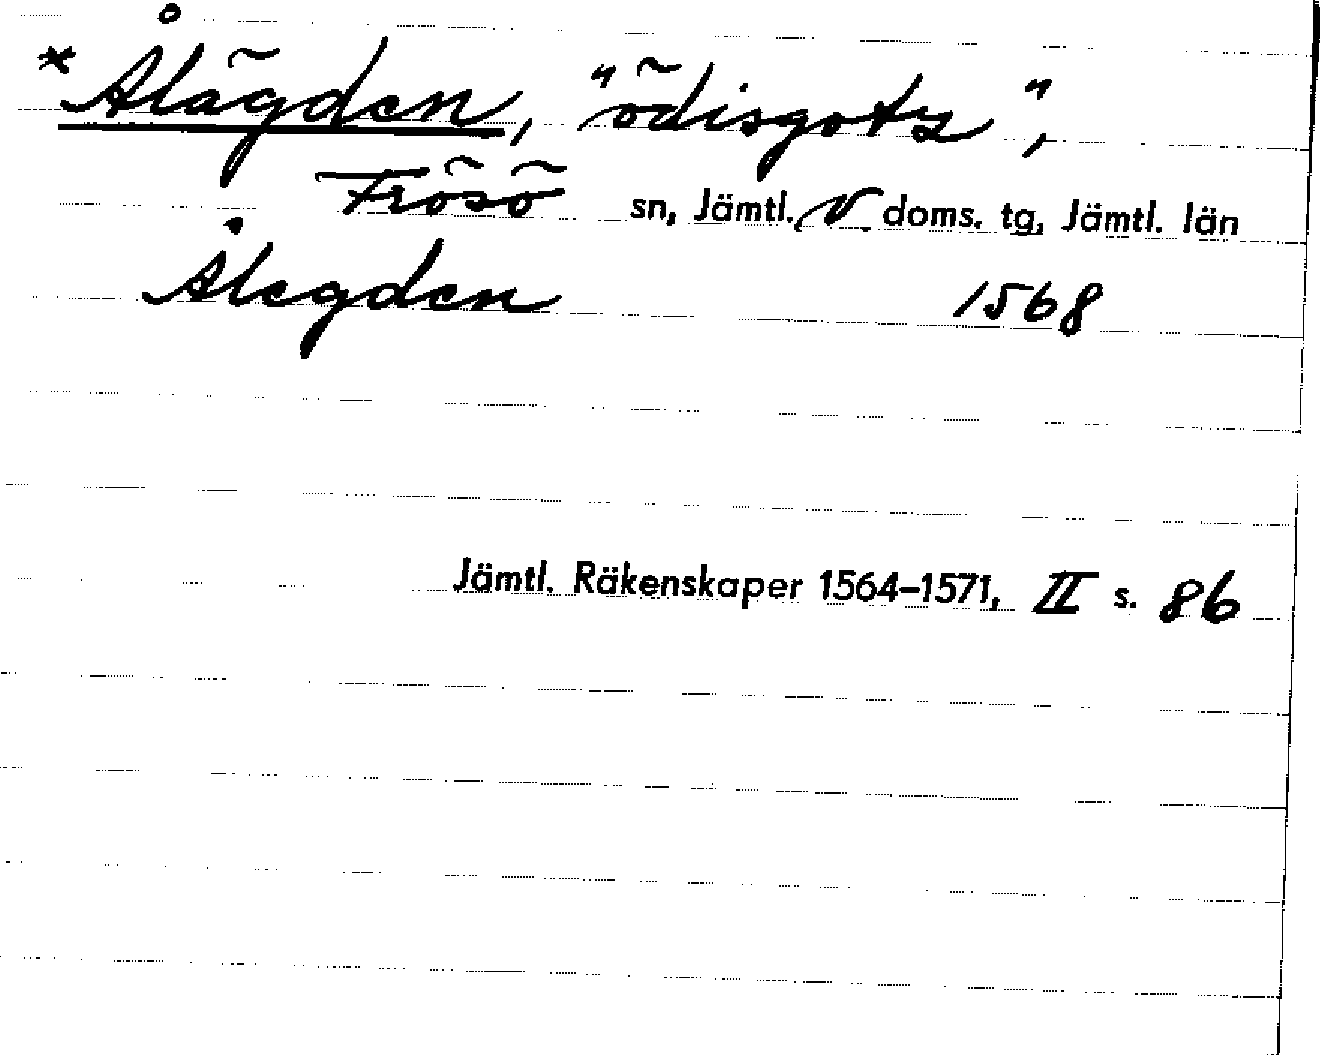 *Ålägden, "ödisgotz",
Frösö sn, Jämtl. V doms. tg, Jämtl. län
Ålegden 1568
Jämtl. Räkenskaper 1564–1571, II s. 86